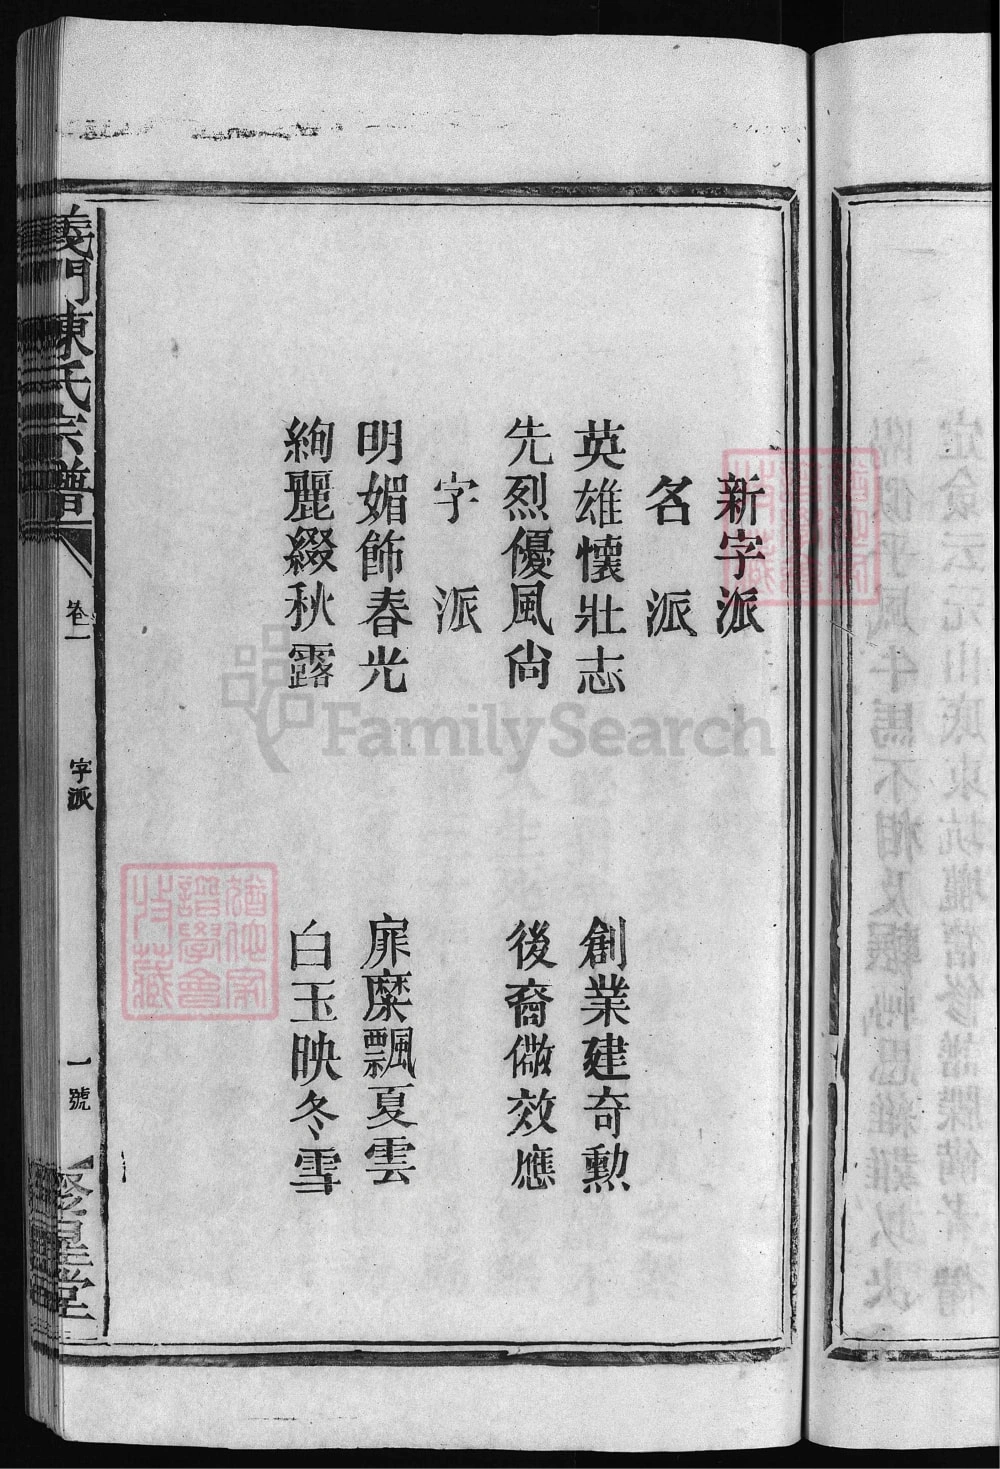 新字派
名派
英雄懷壯志 創業建奇勲
先烈優風尙 後裔儆效應
字派
明媚飾春光 糜飄夏雲
絢麗綴秋露 白玉映冬雪
義門陳氏宗譜
卷一
字派
一號
堂
譜學會
藏
FamilySearch